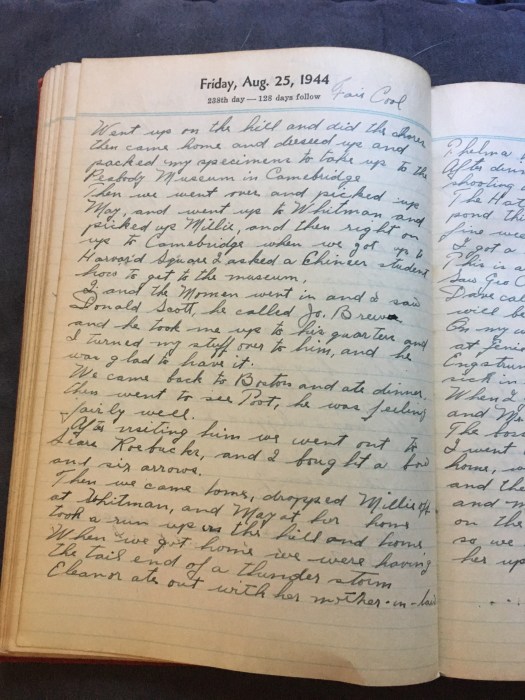 Friday, Aug. 25, 1944
238th day — 128 days follow
Fair Cool
Went up on the hill and did the chores
then came home and dressed up and
packed my specimens to take up to the
Peabody Museum in Camebridge
Then we went over and picked up
May, and went up to Whitman and
picked up Millie, and then right on
up to Camebridge when we got up to
Harvard Square I asked a Chineer student
how to get to the museum,
I and the Women went in and I saw
Donald Scott, he called Jo. Brew
and he took me up to his quarters and
I turned my stuff over to him, and he
was glad to have it.
We came back to Boston and ate dinner.
then went to see Poot, he was feeling
fairly well.
After visiting him we went out to
Sears Roebucks, and I bought a bow
and six arrows.
Then we came home, dropped Millie off
at Whitman, and May at her home
took a run up on the hill and home
When we got home we were having
the tail end of a thunder storm
Eleanor ate out with her mother-in-law
Thelma
After dinn
shooting
The Hat
pond th
fine wea
I got a
This is a
Saw Geo C
Drove ca
will be
On my
at Jenn
Engstrum
sick in
When I
and Me
The boa
I went
home, w
and the
and m
on the
so we
her up